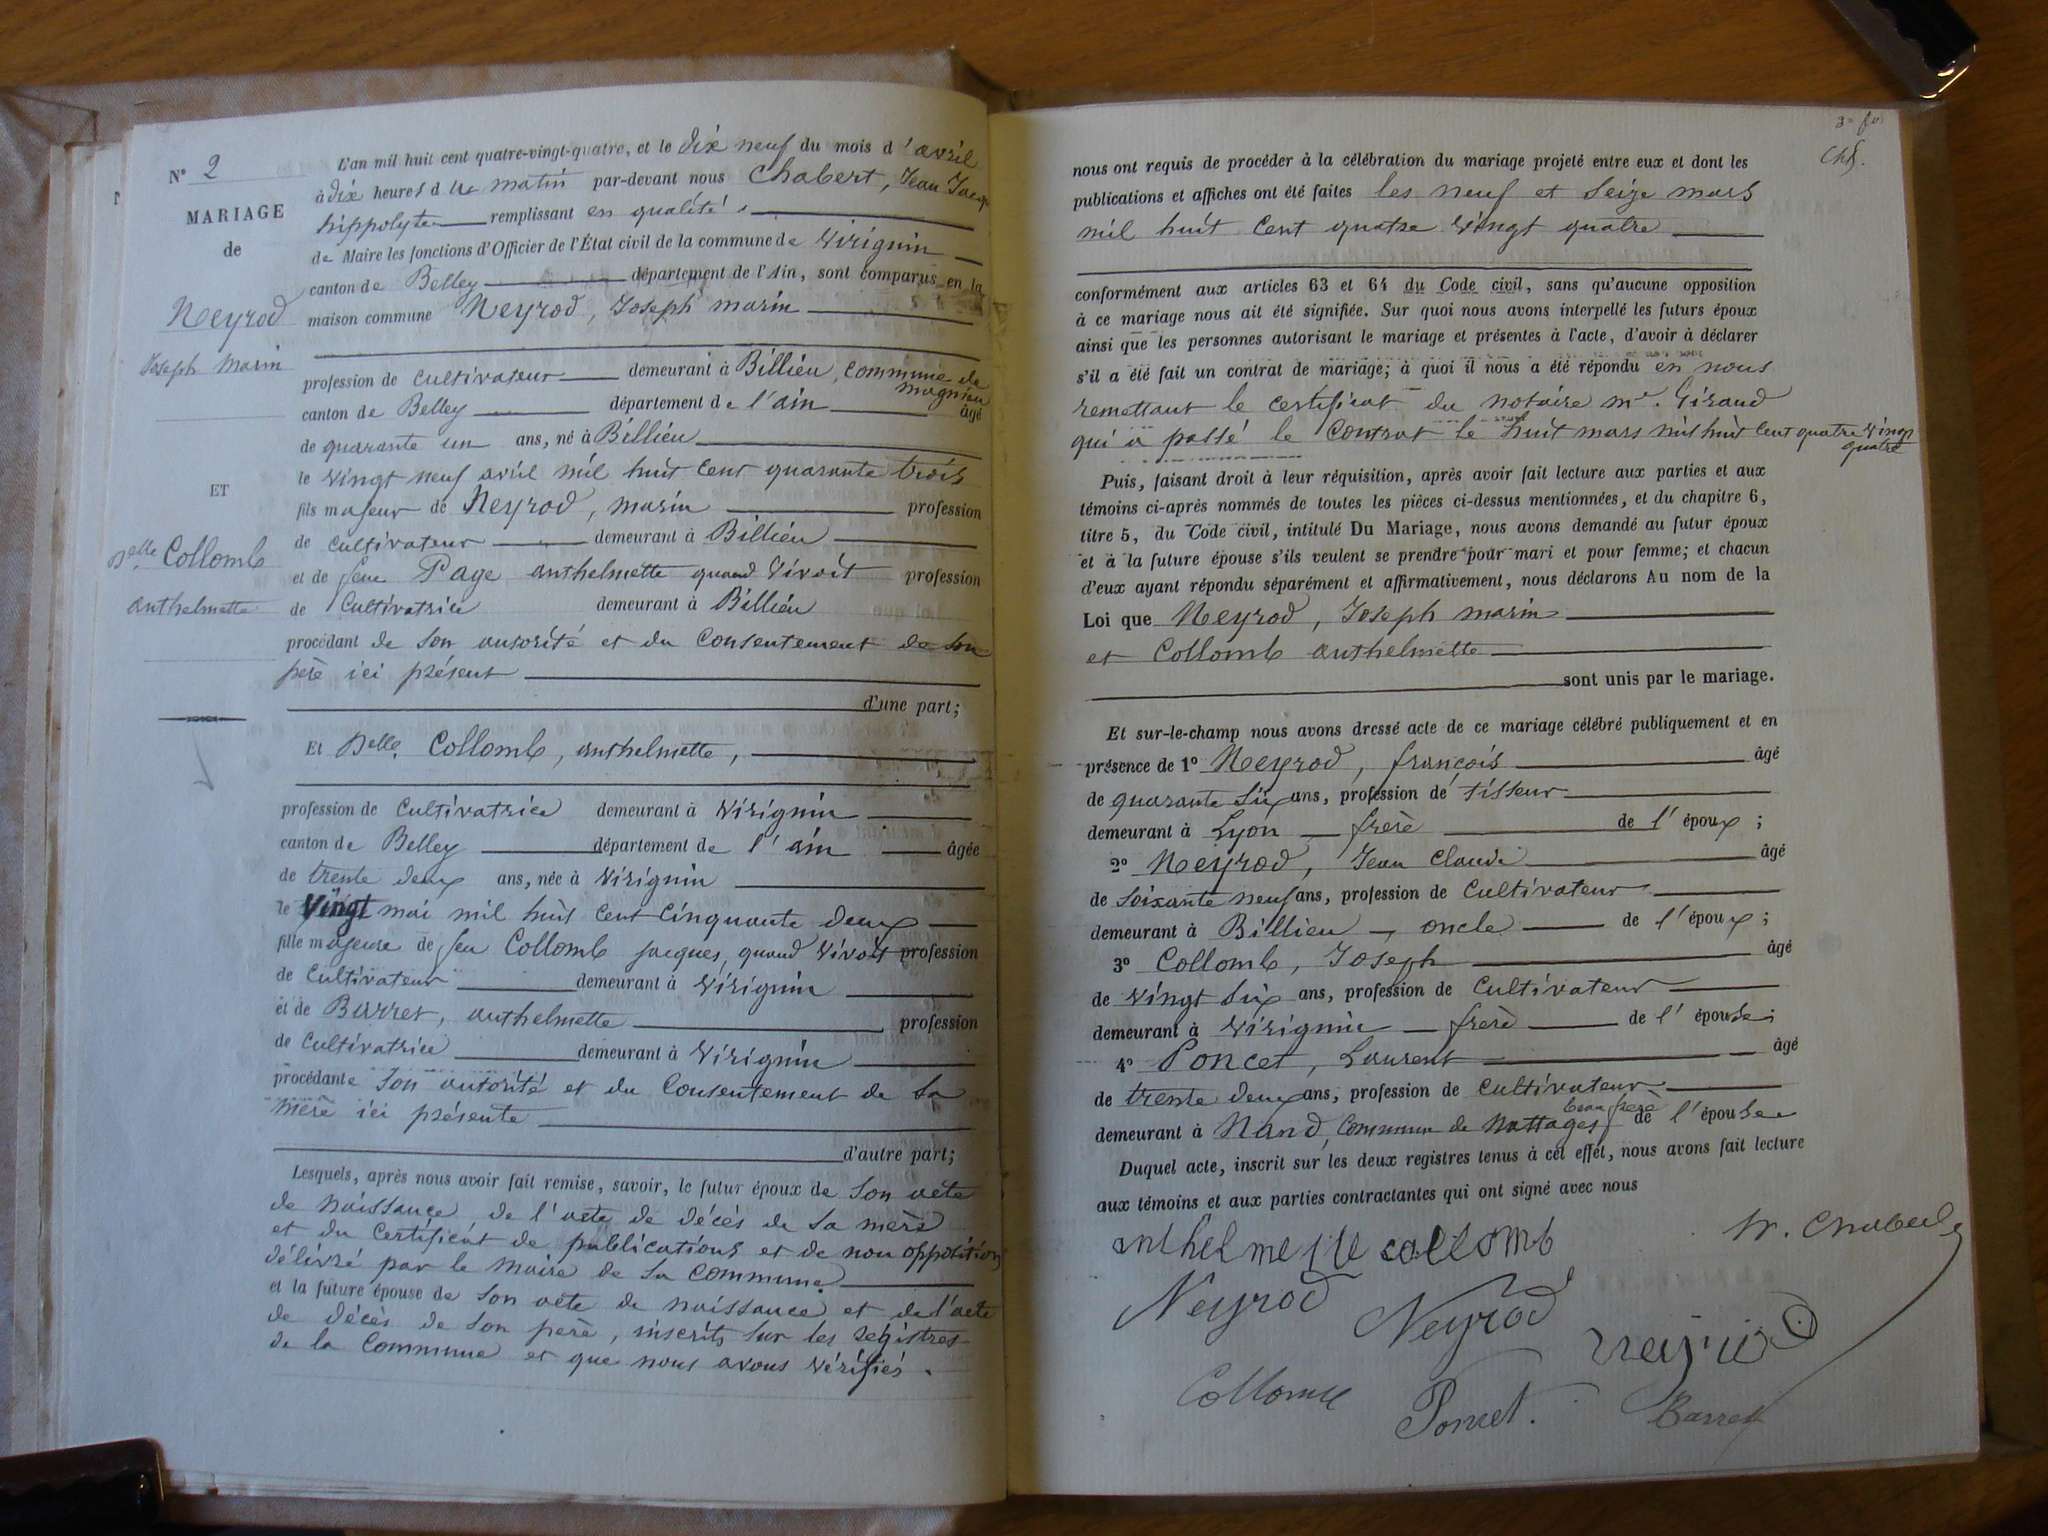 N° 2
MARIAGE
de
Neyrod
Joseph Marin
ET
Delle Collomb
anthelmette
L'an mil huit cent quatre-vingt-quatre, et le dix neuf du mois d'avril
à dix heures du matin par-devant nous Chabert, Jean Jacques
hippolyte remplissant en qualité
de Maire les fonctions d'Officier de l'État civil de la commune de Virignin
canton de Belley département de l'Ain, sont comparus en la
maison commune Neyrod, Joseph marin
profession de cultivateur demeurant à Billieu, commune de
magnieu
canton de Belley département de l'ain âgé
de quarante un ans, né à Billieu
le vingt neuf avril mil huit cent quarante trois
fils majeur de Neyrod, marin profession
de cultivateur demeurant à Billieu
et de feue Page anthelmette quand vivoit profession
de Cultivatrice demeurant à Billieu
procédant de son autorité et du consentement de son
père ici présent
d'une part;
Et Delle Collomb, anthelmette,
profession de cultivatrice demeurant à Virignin
canton de Belley département de l'ain âgée
de trente deux ans, née à Virignin
le Vingt mai mil huit cent cinquante deux
fille majeure de feu Collomb jacques, quand vivoit profession
de Cultivateur demeurant à Virignin
et de Barret, anthelmette profession
de Cultivatrice demeurant à Virignin
procédante son autorité et du Consentement de sa
mère ici présente
d'autre part;
Lesquels, après nous avoir fait remise, savoir, le futur époux de son acte
de naissance de l'acte de décès de sa mère
et du certificat de publications et de non opposition
délivré par le maire de sa commune
et la future épouse de son acte de naissance et de l'acte
de décès de son père, inscrits sur les régistres
de la Commune et que nous avons vérifiés.
Chb.
nous ont requis de procéder à la célébration du mariage projeté entre eux et dont les
publications et affiches ont été faites les neuf et seize mars
mil huit cent quatre vingt quatre
conformément aux articles 63 et 64 du Code civil, sans qu'aucune opposition
à ce mariage nous ait été signifiée. Sur quoi nous avons interpellé les futurs époux
ainsi que les personnes autorisant le mariage et présentes à l'acte, d'avoir à déclarer
s'il a été fait un contrat de mariage; à quoi il nous a été répondu en nous
remettant le certificat du notaire Mr. Giraud
qui a passé le contrat le huit mars mil huit cent quatre vingt
quatre
Puis, faisant droit à leur réquisition, après avoir fait lecture aux parties et aux
témoins ci-après nommés de toutes les pièces ci-dessus mentionnées, et du chapitre 6,
titre 5, du Code civil, intitulé Du Mariage, nous avons demandé au futur époux
et à la future épouse s'ils veulent se prendre pour mari et pour femme; et chacun
d'eux ayant répondu séparément et affirmativement, nous déclarons Au nom de la
Loi que Neyrod, Joseph marin
et Collomb anthelmette
sont unis par le mariage.
Et sur-le-champ nous avons dressé acte de ce mariage célébré publiquement et en
présence de 1° Neyrod, françois âgé
de quarante six ans, profession de tisseur
demeurant à Lyon frère de l'époux;
2° Neyrod, Jean Claude âgé
de soixante neuf ans, profession de Cultivateur
demeurant à Billieu oncle de l'époux;
3° Collomb, Joseph âgé
de vingt six ans, profession de Cultivateur
demeurant à Virignin frère de l'épouse;
4° Poncet, Laurent âgé
de trente deux ans, profession de Cultivateur
demeurant à Nand, Commune de Nattages beau frère de l'épouse
Duquel acte, inscrit sur les deux registres tenus à cet effet, nous avons fait lecture
aux témoins et aux parties contractantes qui ont signé avec nous
anthelmette collomb
H. Chabert
Neyrod
Neyrod
neyrod
Collomb
Poncet.
Barret